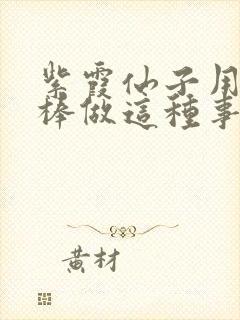 紫霞仙子用
棒做這種事
黃材